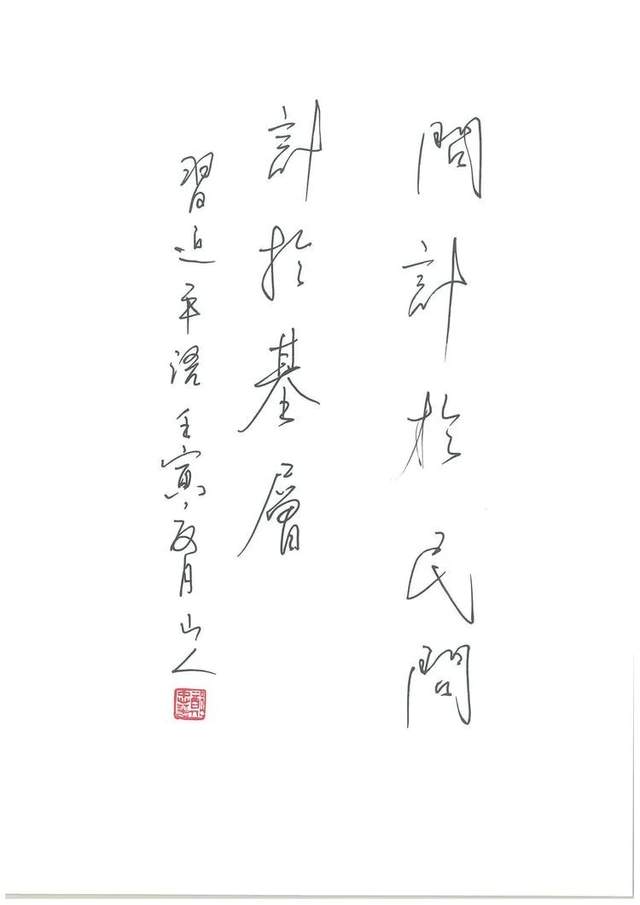 問計於民問
計於基層
習近平語壬寅月山人